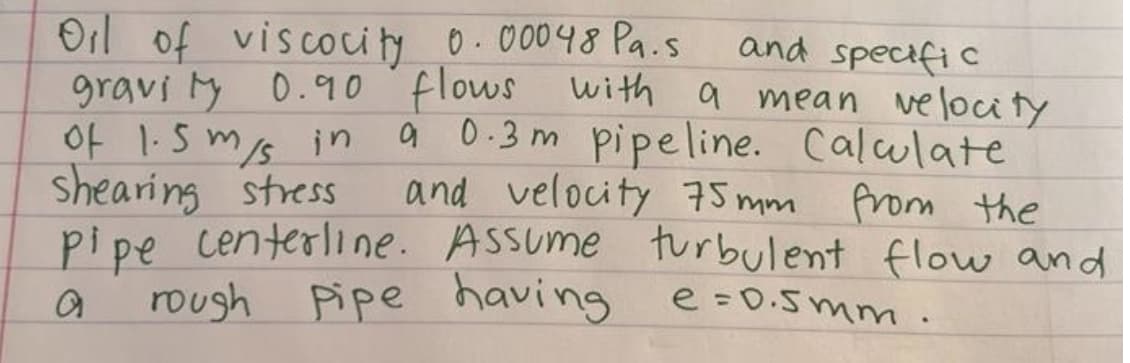 Oil of viscocity 0.00048 Pa.s and specific
gravity 0.90 flows with a mean velocity
of 1.5 m/s in a 0.3 m pipeline. Calculate
shearing stress and velocity 75 mm from the
pipe centerline. Assume turbulent flow and
a rough pipe having e = 0.5 mm.